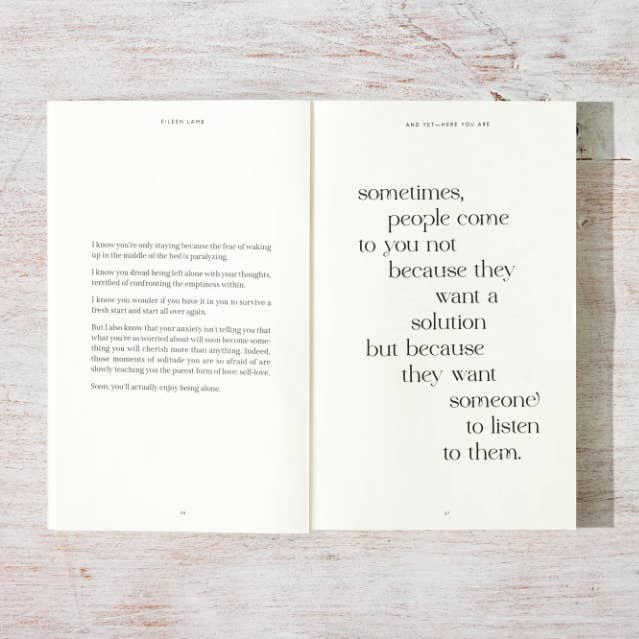 EILEEN LAMB
I know you're only staying because the fear of waking
up in the middle of the bed is paralyzing.
I know you dread being left alone with your thoughts,
terrified of confronting the emptiness within.
I know you wonder if you have it in you to survive a
fresh start and start all over again.
But I also know that your anxiety isn't telling you that
what you're so worried about will soon become some-
thing you will cherish more than anything. Indeed,
those moments of solitude you are so afraid of are
slowly teaching you the purest form of love: self-love.
Soon, you'll actually enjoy being alone.
AND YET—HERE YOU ARE
sometimes,
people come
to you not
because they
want a
solution
but because
they want
someone
to listen
to them.